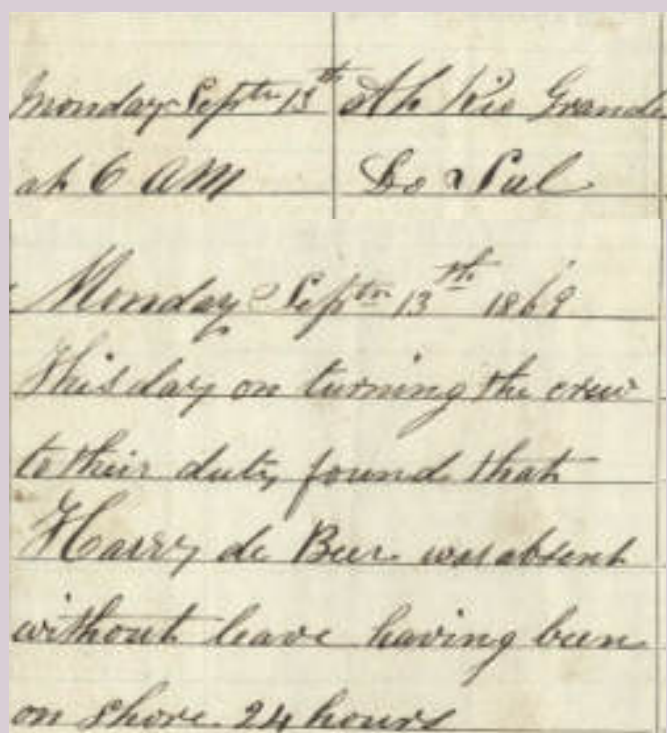 Monday Septr 13th At Rio Grande
at 6 AM Do Sul
Monday Septr 13th 1869
This day on turning the crew
to their duty found that
Harry de Beer was absent
without leave having been
on shore 24 hours